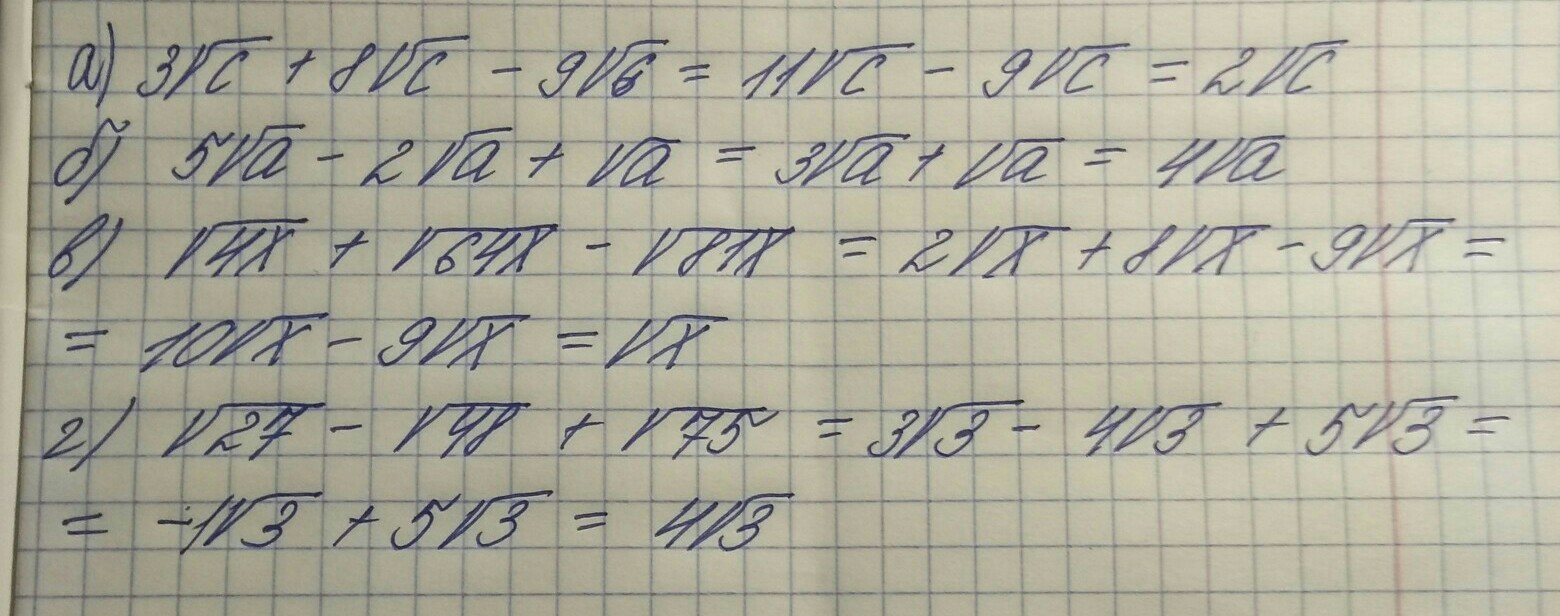 а) 3√c + 8√c - 9√c = 11√c - 9√c = 2√c
б) 5√a - 2√a + √a = 3√a + √a = 4√a
в) √4x + √64x - √81x = 2√x + 8√x - 9√x =
= 10√x - 9√x = √x
г) √27 - √48 + √75 = 3√3 - 4√3 + 5√3 =
= -1√3 + 5√3 = 4√3